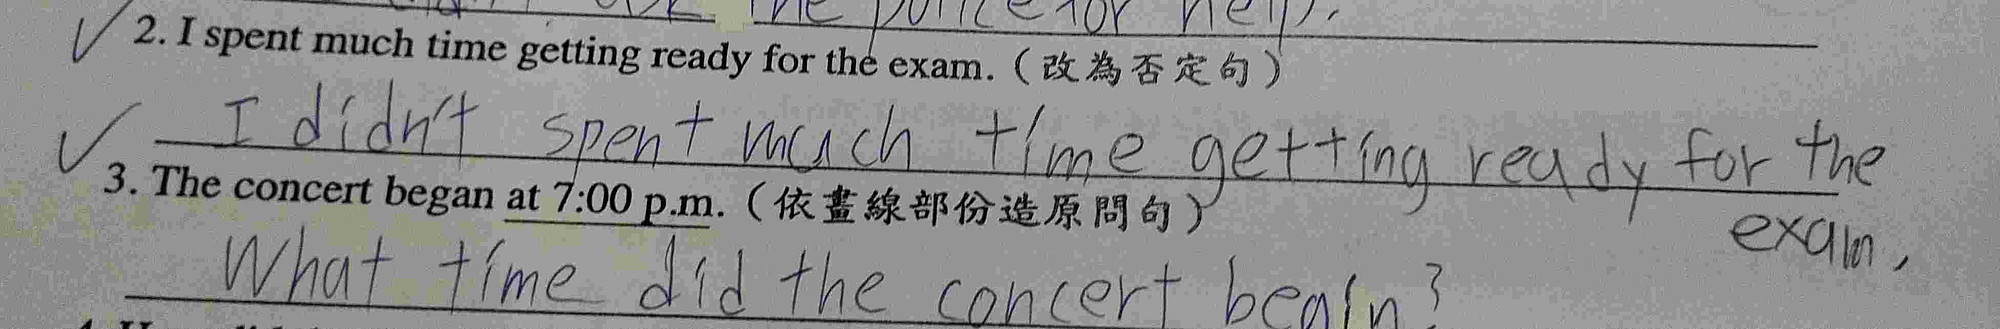 the police for help.
2. I spent much time getting ready for the exam.（改為否定句）
I didn't spent much time getting ready for the exam.
3. The concert began at 7:00 p.m.（依畫線部份造原問句）
What time did the concert begin?